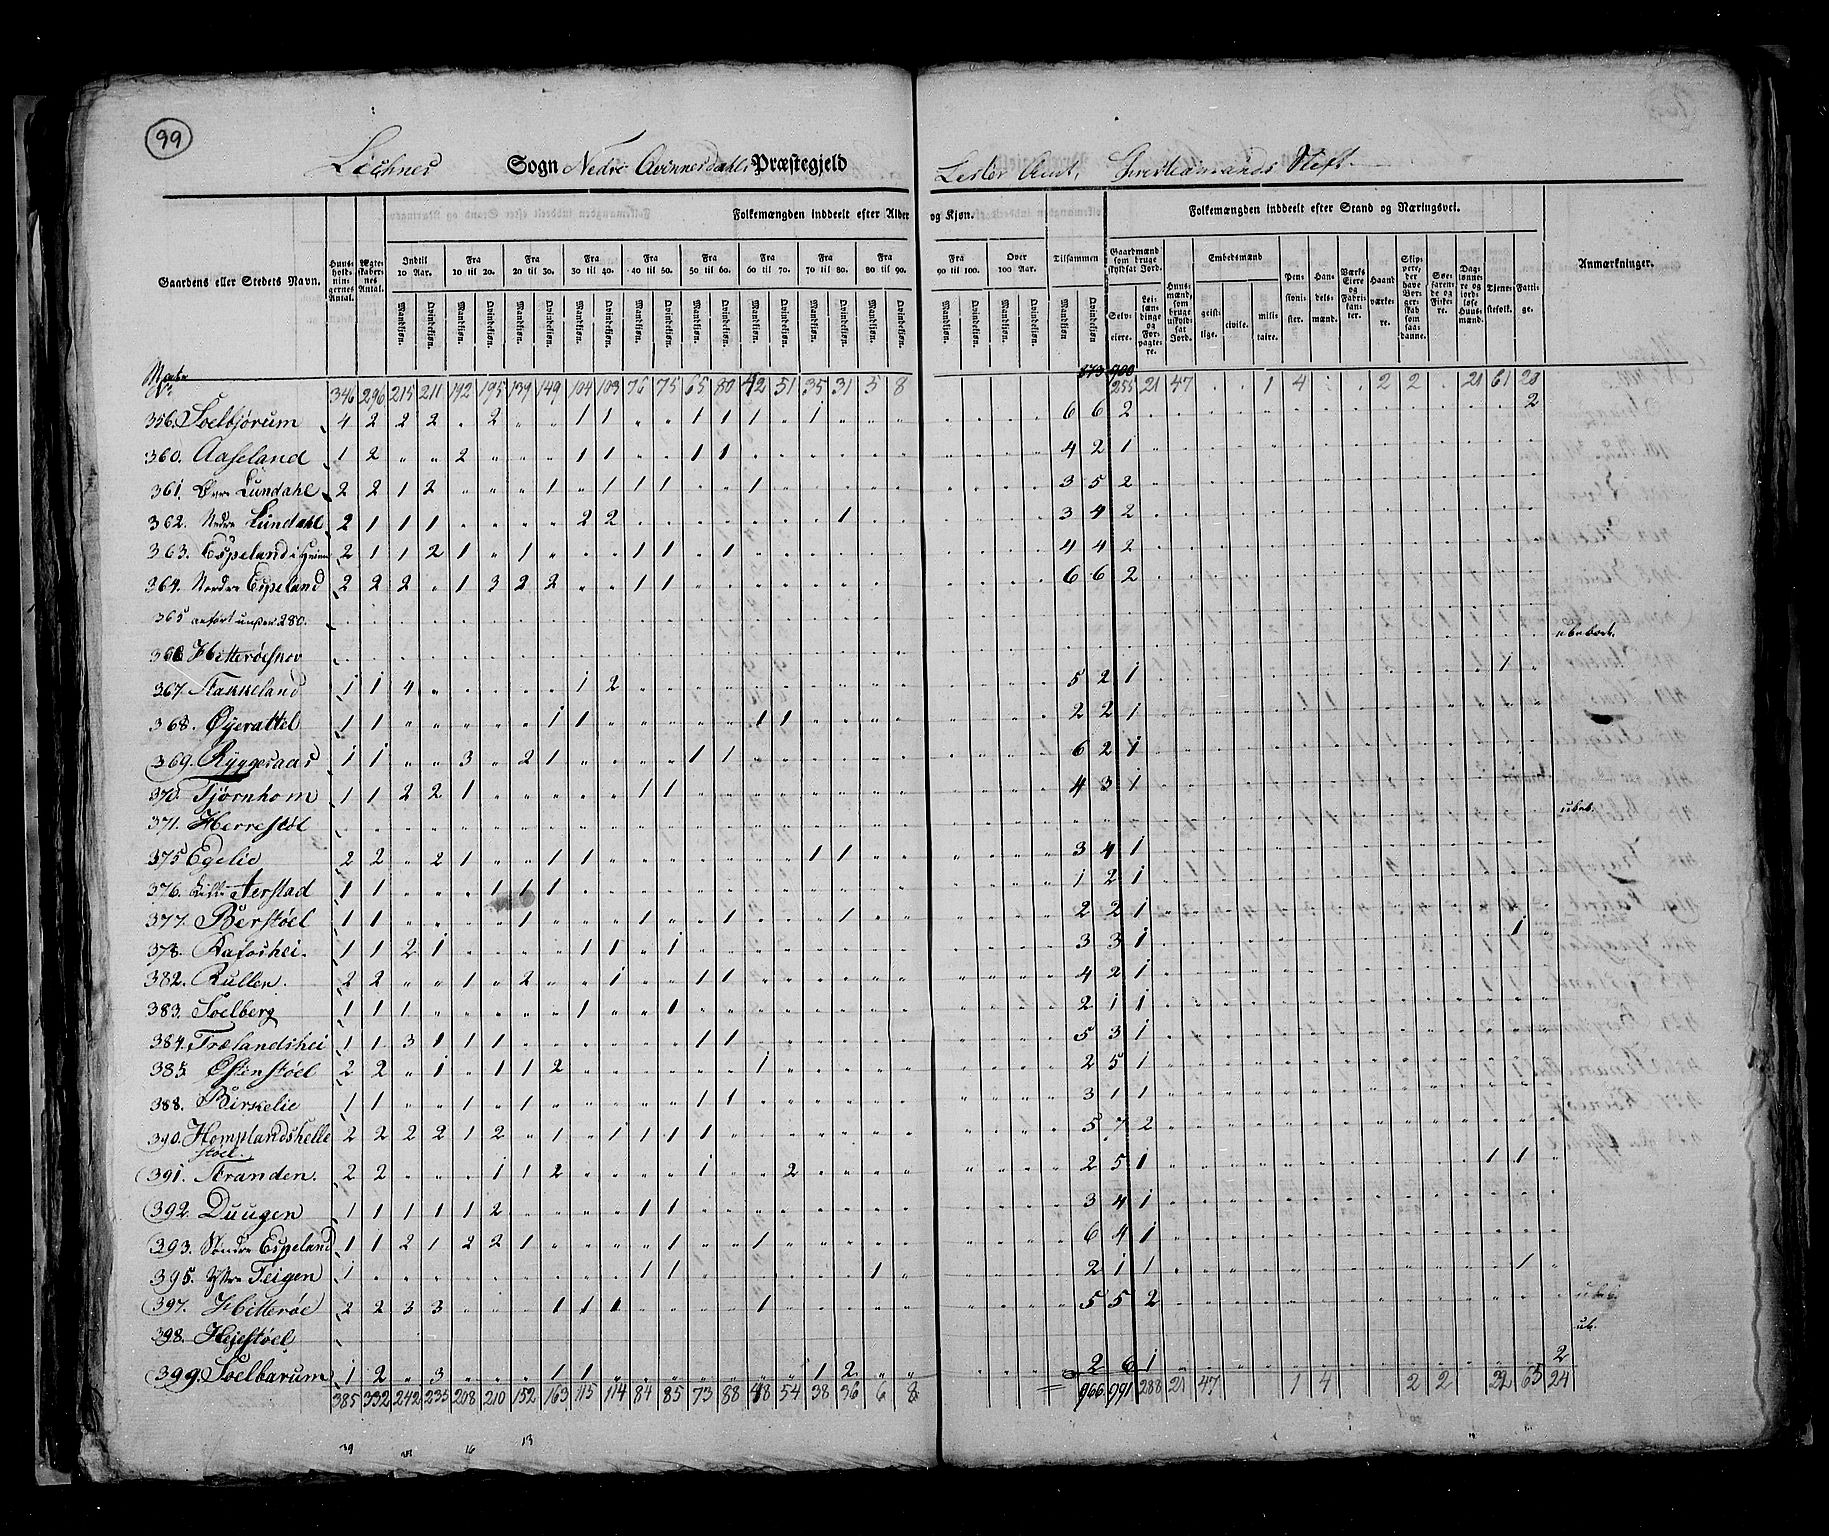 99
Liehnes Sogn Nedre Qvinnesdahls Præstegjeld Lister Amt, Christiansands Stift
Gaardens eller Stedets Navn.
Huus-holdnin-gernes Antal.
Ægte-skaber-nes Antal.
Folkemængden inddeelt efter Alder og Kjøn.
Indtil 10 Aar. Fra 10 til 20. Fra 20 til 30. Fra 30 til 40. Fra 40 til 50. Fra 50 til 60. Fra 60 til 70. Fra 70 til 80. Fra 80 til 90. Fra 90 til 100. Over 100 Aar. Tilsammen
Mandkiøn. Qvindekiøn.
Folkemængden inddeelt efter Stand og Næringsvei.
Gaardmænd som bruge skyldsat Jord.
Selv-eiere. Lei-læn-dinge og For-pagte-re.
Huus-mænd, som bruge uskyld-sat Jord.
Embedsmænd
geist-lige. civile. mili-taire.
Pen-sioni-ster.
Han-dels-mænd.
Værks Eiere og Fabri-kan-ter.
Haand-værke-re.
Skip-pere, der have Bor-ger-skab som saa-danne.
Søe-faren-de og Fiske-re.
Dag-lønne-re og jord-løse Huus-mænd.
Tjene-stefolk.
Fatti-ge.
Anmærkninger.
346 296 215 211 192 195 139 149 104 103 76 75 65 80 42 51 35 31 5 8 873 900 255 21 47 1 4 2 2 21 61 20
356. Soelbjørum 4 2 2 2 . 2 . . 1 1 . . 1 1 1 . 1 6 6 2 2
360. Aaseland 1 2 . . 2 . . . 1 1 . . 1 1 4 2 1
361. Øvre Lundahl 2 2 1 2 . . . 1 . 1 1 1 . . 1 3 5 2
362. Nedre Lundahl 2 1 1 1 . . . . 2 2 . . . . . . . 1 3 4 2
363. Espeland i Heien 2 1 1 2 1 . 1 . . . 1 1 . 1 4 4 2
364. Nordre Espeland 2 2 2 . 1 3 2 2 . . 1 1 6 6 2
365 anført under 280.
366 Hitterøesnov ubeboet.
367. Stakkeland 1 1 4 . . . . . 1 2 5 2 1 1
368. Øyerattel 1 1 . . . . . 1 1 . . . . . 1 1 2 2 1
369. Ryggesaas 1 1 . . 3 . 2 1 . . . . 1 1 6 2 1
370. Tjørnhom 1 1 2 2 1 . . . . . 1 1 4 3 1
371. Herrestøl ubeb.
375 Egelie 2 2 . 2 1 . . 1 1 . . . . . . . 1 1 3 4 1
376. Aerstad 1 1 . . . 1 1 1 1 2 1
377. Berstøel 1 1 . . . . 1 . . . 1 . . 1 . . . 1 2 2 1 1
378. Rafoshei. 1 1 2 1 . . . . 1 1 . 1 3 3 1
382. Kullen. 2 2 . . 1 . 2 . . 1 . . 1 1 4 2 1
383. Soelberg 1 1 1 . . . . . 1 . . 1 2 1 1
384. Trælandshei 1 1 3 1 1 1 . . . . . . 1 1 5 3 1
385. Østenstøel 2 2 . 1 . 1 1 2 . . . . . . 1 2 5 1
388. Birkelie 1 1 . . 1 . 1 . . . . . 1 1 3 1 1
390. Homplandshelle støel. 2 2 2 2 1 2 . 1 . 1 1 1 1 5 7 2
391. Stranden. 2 2 . . . 1 1 2 . . . . 1 . . 2 2 5 1 1 1
392. Duugen 1 1 1 1 1 2 . . . . 1 1 3 4 1
393. Søndre Espeland 1 1 2 1 2 2 1 . . . . 1 . . 1 6 4 1
395. Yttre Teigen 1 . . . . . . . . . 1 1 . . . . . . 1 2 1 1 1
397. Hitterøe 2 2 3 3 . . . 1 1 1 . . . . 1 5 5 2 ubeb.
398. Hejestøel ub.
399. Soelbarum 1 2 . 3 . . . 1 1 . . . . . . . 1 2 2 6 1 2
385 332 242 235 208 210 152 163 115 114 84 85 73 88 48 54 38 36 6 8 966 991 288 21 47 1 4 2 2 22 65 24
39 16 13